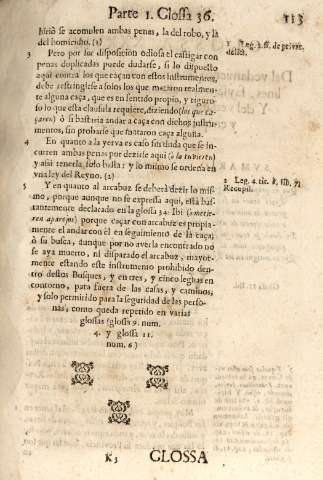 Parte 1. Glossa 36.
113
hirió se acomulen ambas penas, la del robo, y la
del homicidio. (1)
1 Leg. 3. ff. de privat.
delict.
3 Pero por ser disposicion odiosa el castigar con
penas duplicadas puede dudarse, si lo dispuesto
aqui contra los que caçan con estos instrumentos,
debe restringirse a solos los que mataron realmen-
te alguna caça, que es en sentido propio, y riguro-
so lo que esta clausula requiere, diziendo (los que ca-
çaren) ò si bastaria andar a caça con dichos instru-
mentos, sin probarse que mataron caça alguna.
4 En quanto a la yerva es caso sin duda que se in-
curren ambas penas por dezirse aqui (ò la tuvieren)
y assi tenerla, solo basta: y lo mismo se ordena en
vna ley del Reyno. (2)
2 Leg. 4. tit. 8. lib. 7.
Recopil.
5 Y en quanto al arcabuz se deberá dezir lo mis-
mo, porque aunque no se expressa aqui, está bas-
tantemente declarado en la glossa 34. Ibi (ò metie-
ren aparejo) porque caçar con arcabuz es propia-
mente el andar con èl en seguimiento de la caça,
ò su busca, aunque por no averla encontrado no
se aya muerto, ni disparado el arcabuz, mayor-
mente estando este instrumento prohibido den-
tro destos Bosques, y en tres, y cinco leguas en
contorno, para fuera de las casas, y caminos,
y solo permitido para la seguridad de las perso-
nas, como queda repetido en varias
glossas (glossa 9. num.
4. y glossa 11.
num. 6.)
K3
GLOSSA